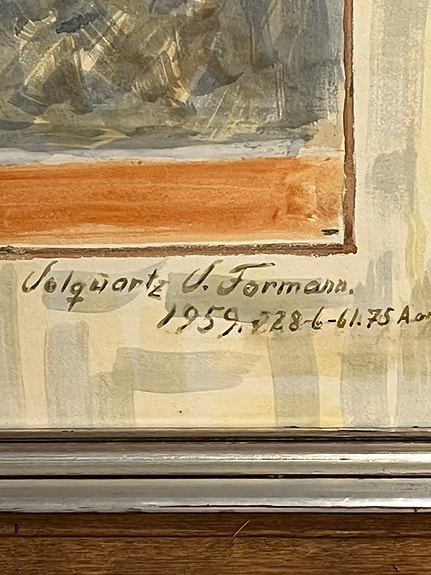 Volquartz V. Formann.
1959. 28-6-61. 75 Aar